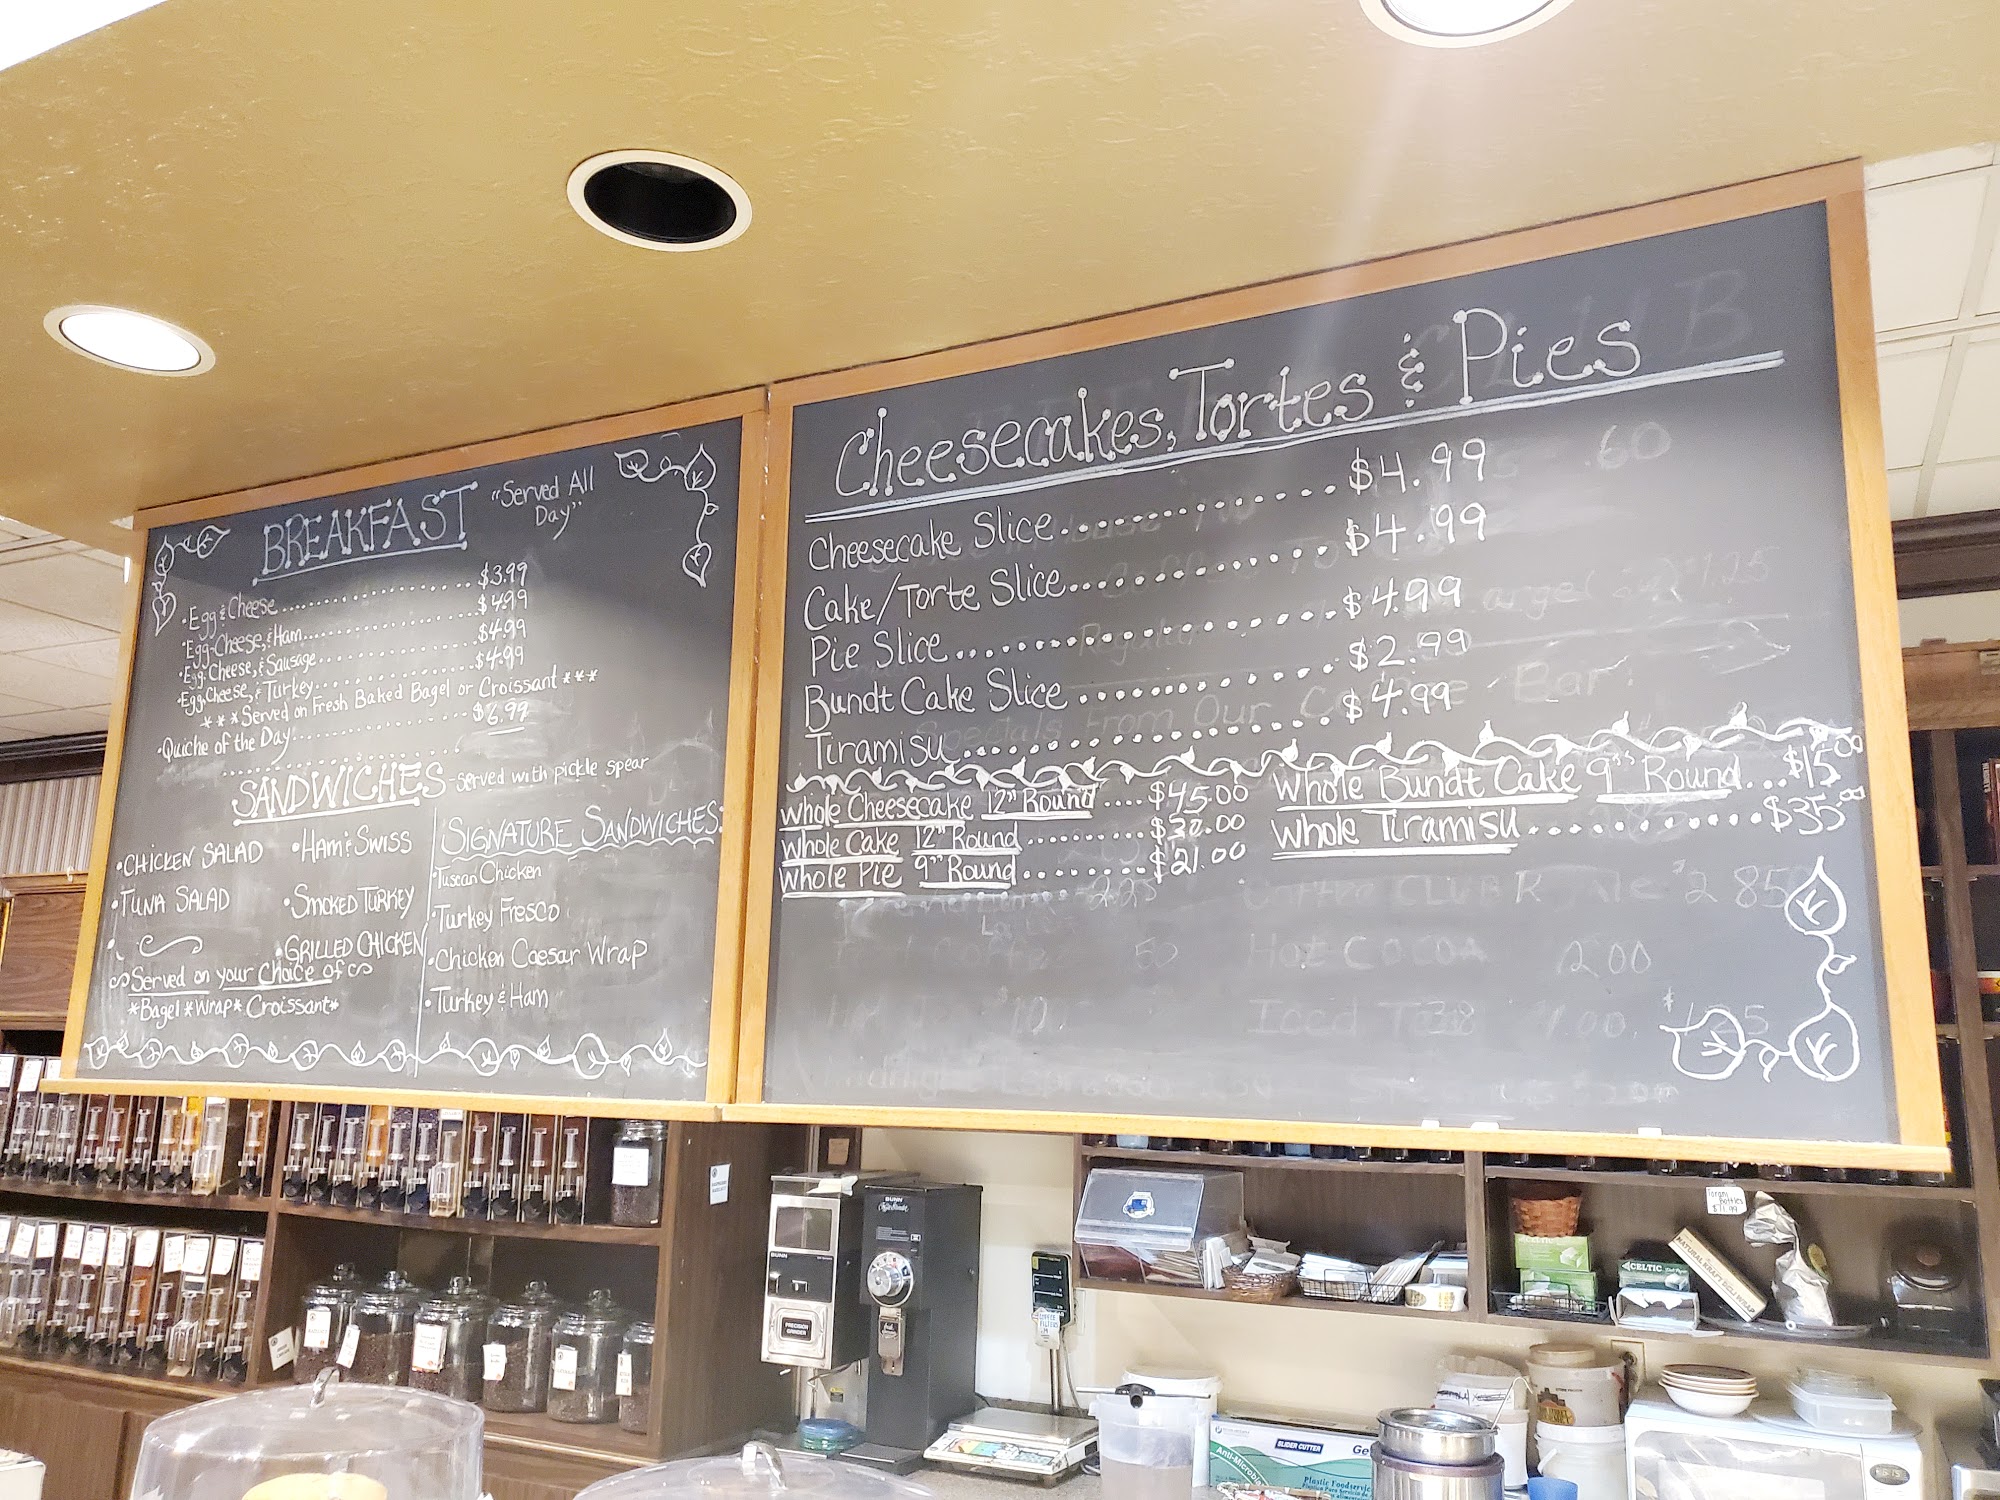 BREAKFAST "Served All
Day"
• Egg & Cheese .......... $3.99
• Egg, Cheese, & Ham .......... $4.99
• Egg, Cheese, & Sausage .......... $4.99
• Egg, Cheese, & Turkey .......... $4.99
*** Served on Fresh Baked Bagel or Croissant ***
• Quiche of the Day: .......... $6.99
SANDWICHES - served with pickle spear
• CHICKEN SALAD
• TUNA SALAD
• HAM & SWISS
• SMOKED TURKEY
• GRILLED CHICKEN
Served on your choice of
*Bagel *Wrap* Croissant*
SIGNATURE SANDWICHES:
• Tuscan Chicken
• Turkey Fresco
• Chicken Caesar Wrap
• Turkey & Ham
Cheesecakes, Tortes & Pies
Cheesecake Slice .......... $4.99
Cake/Torte Slice .......... $4.99
Pie Slice .......... $4.99
Bundt Cake Slice .......... $2.99
Tiramisu .......... $4.99
Whole Cheesecake 12" Round .... $45.00
Whole Cake 12" Round .......... $32.00
Whole Pie 9" Round ........ $21.00
Whole Bundt Cake 9" Round ... $15.00
Whole Tiramisu .......... $35.00
Hot Cocoa 2.00
BUNN
PRECISION
GRINDER
BUNN
Torani
Bottles
CELTIC
NATURAL KRAFT DELI WRAP
SLIDER CUTTER
Anti-Microbial